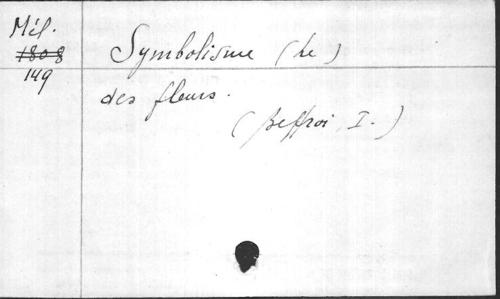 Mél.
1808
149
Symbolisme (Le)
des fleurs.
(Beffroi, I.)